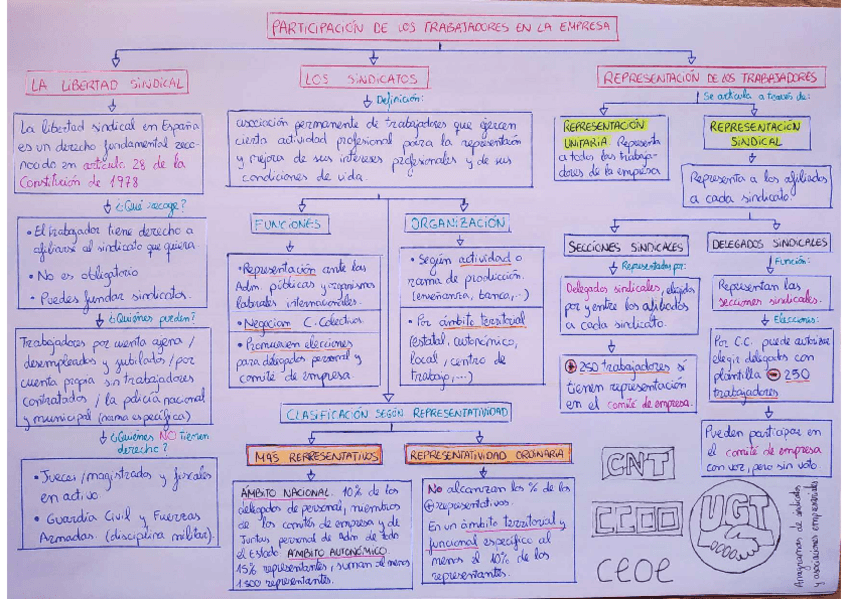 PARTICIPACIÓN DE LOS TRABAJADORES EN LA EMPRESA
LA LIBERTAD SINDICAL
La libertad sindical en España
es un derecho fundamental reco-
nocido en artículo 28 de la
Constitución de 1978
¿Qué recoge?
• El trabajador tiene derecho a
afiliarse al sindicato que quiera
• No es obligatorio
• Puedes fundar sindicatos.
¿Quiénes pueden?
Trabajadores por cuenta ajena /
desempleados y jubilados / por
cuenta propia sin trabajadores
contratados / la policía nacional
y municipal (norma específica)
¿Quiénes NO tienen
derecho?
• Jueces / magistrados y fiscales
en activo.
• Guardia Civil y Fuerzas
Armadas. (disciplina militar).
LOS SINDICATOS
Definición:
asociación permanente de trabajadores que ejercen
cierta actividad profesional para la representación
y mejora de sus intereses profesionales y de sus
condiciones de vida.
FUNCIONES
• Representación ante las
Adm. públicas y organismos
laborales internacionales.
• Negocian C. Colectivos
• Promueven elecciones
para delegados personal y
comité de empresa.
ORGANIZACIÓN
• Según actividad o
rama de producción.
(enseñanza, banca,..)
• Por ámbito territorial
(estatal, autonómico,
local, centro de
trabajo,...)
CLASIFICACIÓN SEGÚN REPRESENTATIVIDAD
MAS REPRESENTATIVOS
ÁMBITO NACIONAL. 10% de los
delegados de personal, miembros
de los comités de empresa y de
Juntas personal de Adm de todo
el Estado ÁMBITO AUTONÓMICO.
15% representantes, suman al menos
1500 representantes.
REPRESENTATIVIDAD ORDINARIA
No alcanzan los % de los
⊕ representativos.
En un ámbito territorial y
funcional específico al
menos el 10% de los
representantes.
REPRESENTACIÓN DE LOS TRABAJADORES
Se articula a través de:
REPRESENTACIÓN
UNITARIA. Representa
a todos los trabaja-
dores de la empresa
REPRESENTACIÓN
SINDICAL
Representa a los afiliados
a cada sindicato.
SECCIONES SINDICALES
Representados por:
Delegados sindicales, elegidos
por y entre los afiliados
a cada sindicato.
⊕ 250 trabajadores sí
tienen representación
en el comité de empresa.
DELEGADOS SINDICALES
Función:
Representan las
secciones sindicales.
Elecciones:
Por C.C. puede autorizar
elegir delegados con
plantilla ⊖ 250
trabajadores
Pueden participar en
el comité de empresa
con voz, pero sin voto
CNT
CCOO
ceoe
UGT
Anagramas de sindicatos
y asociaciones empresariales